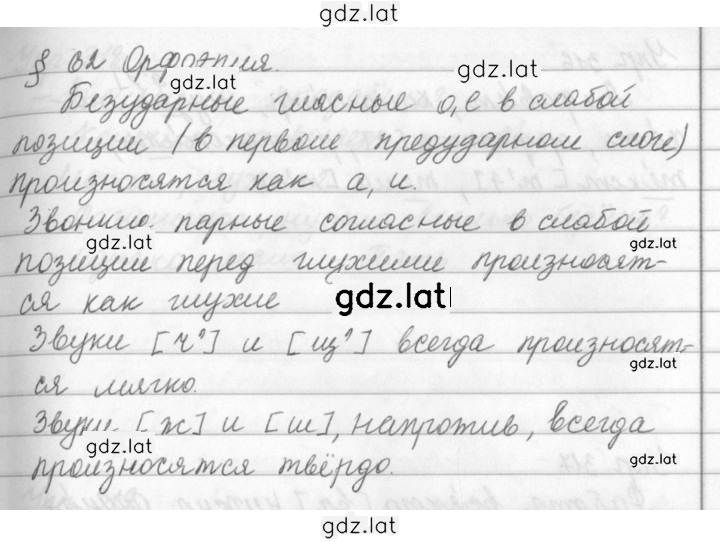 gdz.lat
§ 62 Орфоэпия.
gdz.lat gdz.lat
Безударные гласные о, е в слабой
позиции (в первом предударном слоге)
произносятся как а, и.
Звонкие парные согласные в слабой
gdz.lat gdz.lat
позиции перед глухими произносят-
ся как глухие
gdz.lat
Звуки [ч'] и [щ'] всегда произносят-
gdz.lat
ся мягко.
Звуки [ж] и [ш], напротив, всегда
gdz.lat gdz.lat
произносятся твёрдо.
gdz.lat